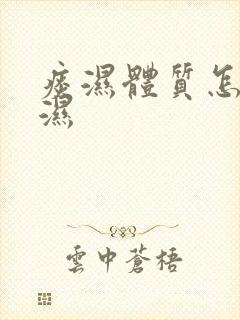 痰濕體質怎
濕
雲中蒼梧